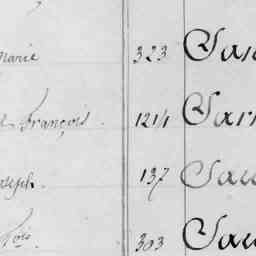 Marie 323 San
François 1214 Sarr
Joseph. 137 Sau
fois. 303 Sau